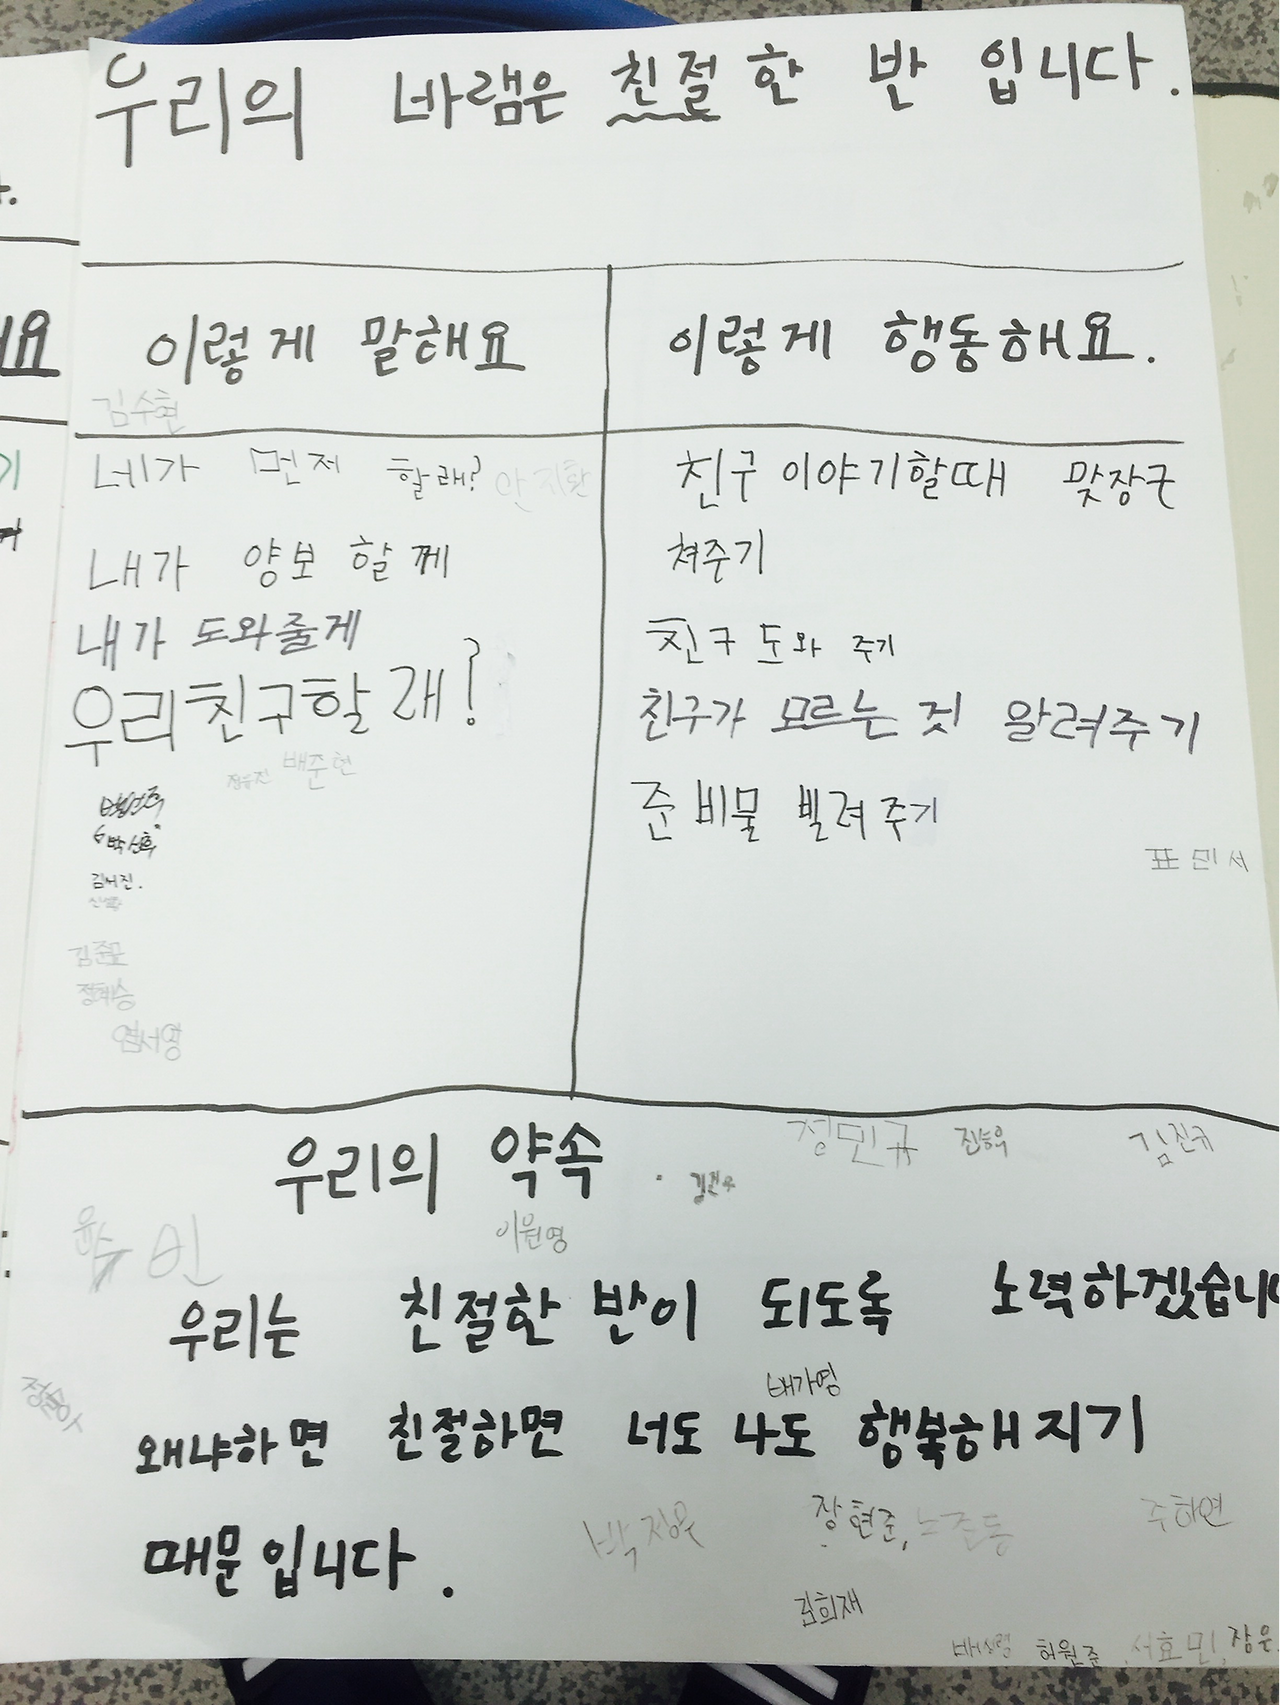 우리의 바램은 친절한 반 입니다.
이렇게 말해요
이렇게 행동해요.
김수현
네가 먼저 할래? 안지환
내가 양보 할께
내가 도와줄게
우리친구할래?
배준현
박선혁
김서진.
김준모
정혜승
염서영
친구 이야기할때 맞장구
쳐주기
친구 도와 주기
친구가 모르는 것 알려주기
준비물 빌려주기
표민서
우리의 약속
정민규
김진규
이원영
우리는 친절한 반이 되도록 노력하겠습니다
배가영
왜냐하면 친절하면 너도 나도 행복해지기
때문입니다.
박정우
장현준,
주하연
김희재
허원준
서효민,